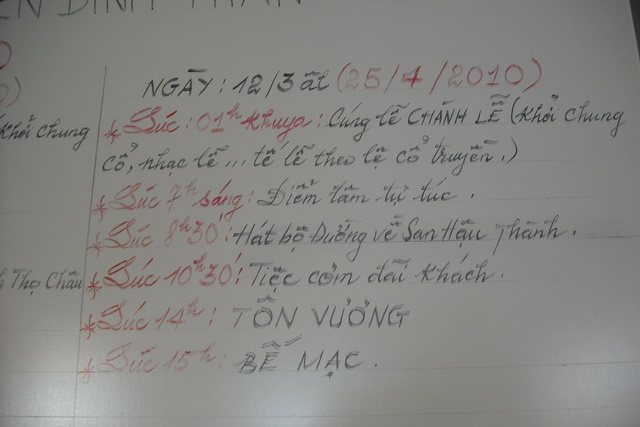 NGÀY: 12/3 âl (25/4/2010)
Khởi chung
* Lúc: 01h khuya: Cúng tế CHÁNH LỄ (Khởi chung
cổ, nhạc lễ... tế lễ theo lệ cổ truyền.)
* Lúc 7h sáng: Điểm tâm tự túc.
* Lúc 8h30': Hát bộ Đường về San Hậu Thành.
Thọ Châu
* Lúc 10h30': Tiệc cơm đãi khách.
* Lúc 14h: TÔN VƯƠNG
* Lúc 15h: BẾ MẠC.